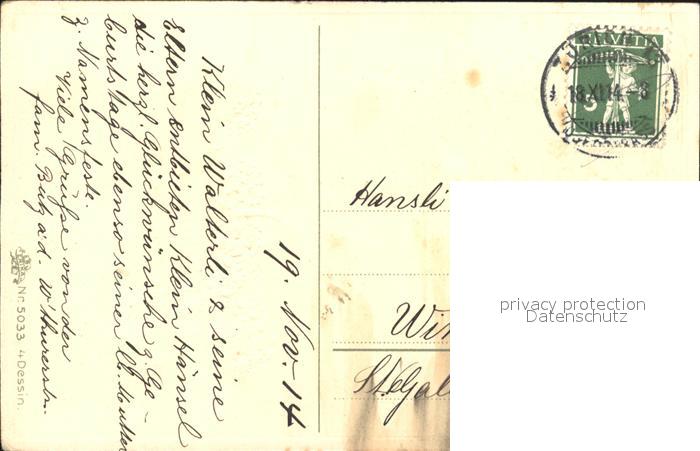 Klein Walterli & seine
Eltern entbieten Klein Hansel
die herzl. Glückwünsche z. Ge-
burtstage ebenso seiner lb. Mutter
z. Namensfeste.
Viele Grüsse von der
fam. Butz a/d.
19. Nov. 14
Nr. 5033 4 Dessin.
HELVETIA
5
18.XI.14.-8
Hansli
Wi
St. Gal
privacy protection
Datenschutz